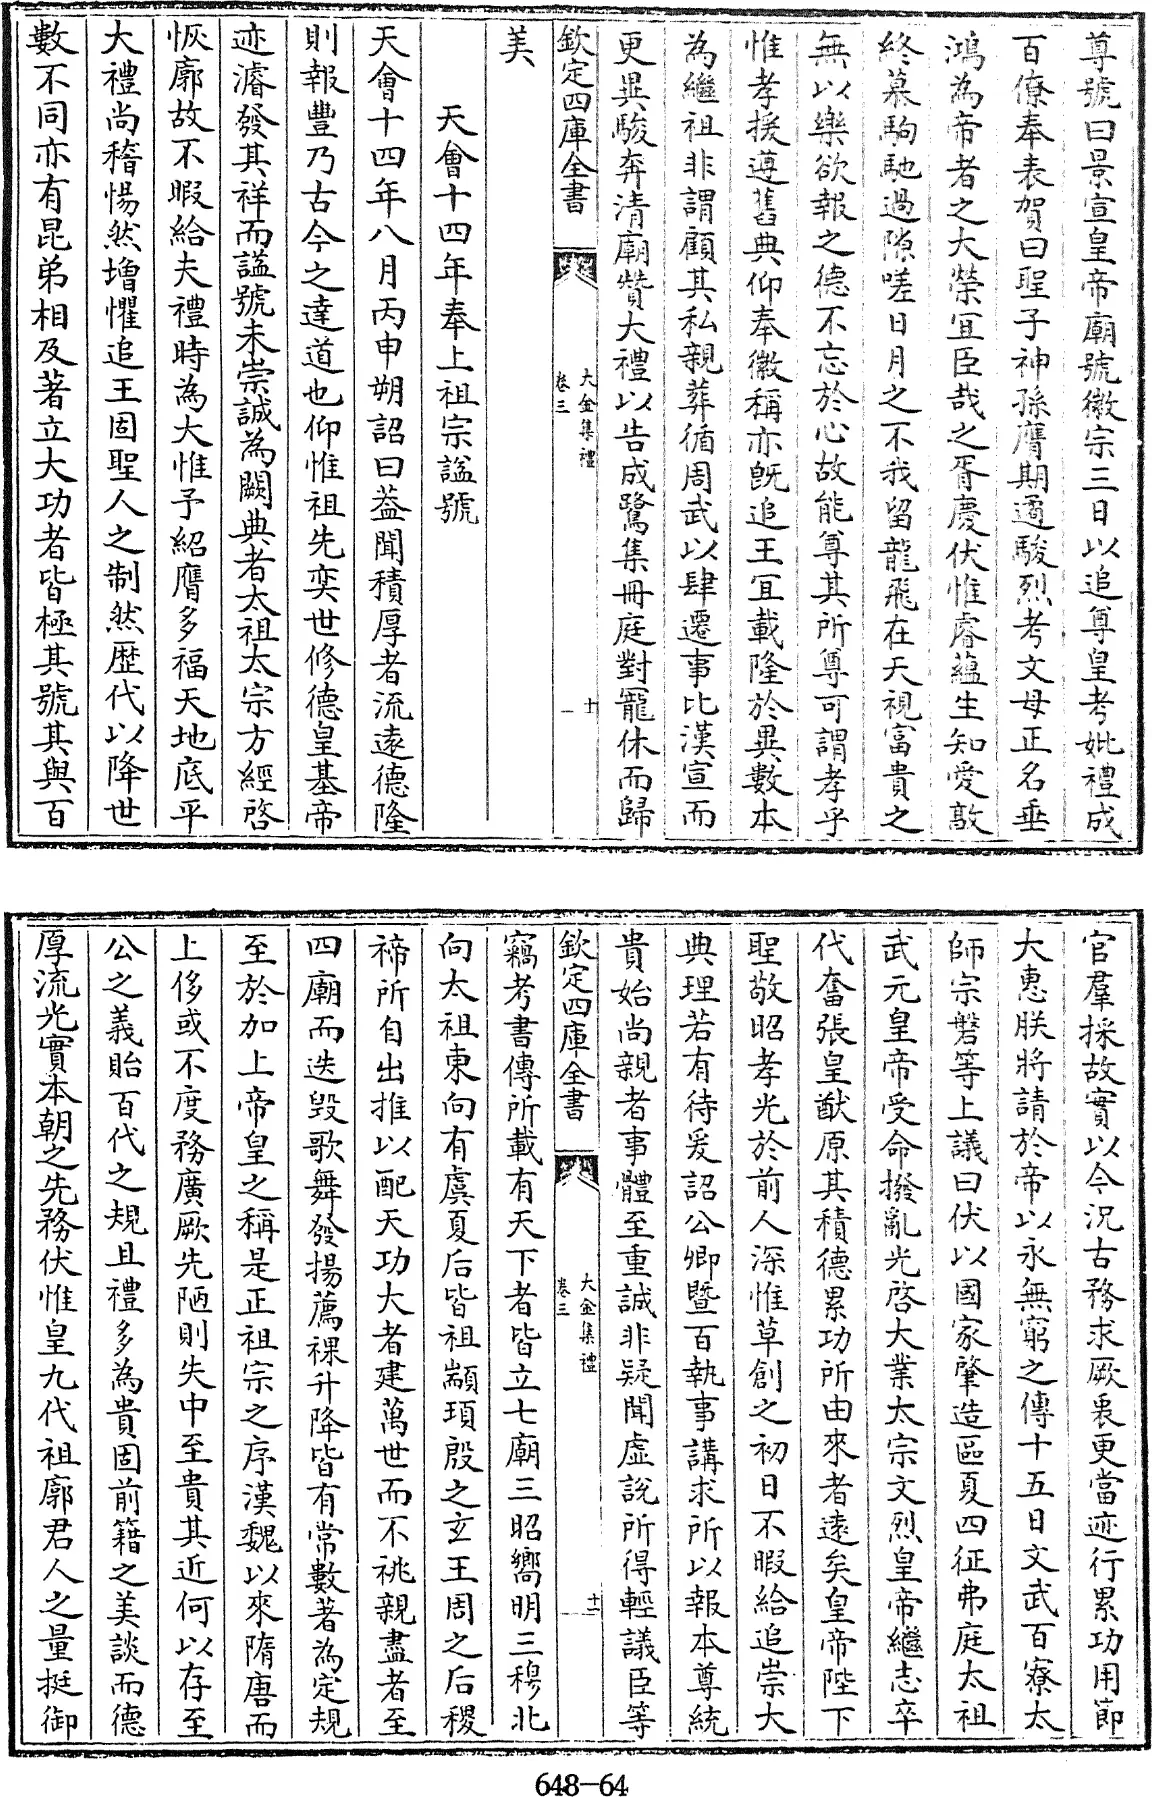 尊號曰景宣皇帝廟號徽宗三日以追尊皇考妣禮成
百僚奉表賀曰聖子神孫膺期遹駿烈考文母正名垂
鴻為帝者之大榮宜臣哉之胥慶伏惟睿蘊生知愛敬
終慕駒馳過隙嗟日月之不我留龍飛在天視富貴之
無以樂欲報之德不忘於心故能尊其所尊可謂孝乎
惟孝援遵舊典仰奉徽稱亦既追王宜載隆於異數本
為繼祖非謂顧其私親葬循周武以肆遷事比漢宣而
更異駿奔清廟贊大禮以告成鷺集冊庭對寵休而歸
欽定四庫全書
大金集禮
卷三
十一
美
天會十四年奉上祖宗諡號
天會十四年八月丙申朔詔曰葢聞積厚者流遠德隆
則報豐乃古今之達道也仰惟祖先奕世修德皇基帝
迹濬發其祥而諡號未崇誠為闕典者太祖太宗方經啓
恢廓故不暇給夫禮時為大惟予紹膺多福天地底平
大禮尚稽惕然增懼追王固聖人之制然歴代以降世
數不同亦有昆弟相及著立大功者皆極其號其與百
官羣採故實以今況古務求厥衷更當迹行累功用節
大惠朕將請於帝以永無窮之傳十五日文武百寮太
師宗磐等上議曰伏以國家肇造區夏四征弗庭太祖
武元皇帝受命撥亂光啓大業太宗文烈皇帝繼志卒
代奮張皇猷原其積德累功所由來者遠矣皇帝陛下
聖敬昭孝光於前人深惟草創之初日不暇給追崇大
典理若有待爰詔公卿暨百執事講求所以報本尊統
貴始尚親者事體至重誠非疑聞虛說所得輕議臣等
欽定四庫全書
大金集禮
卷三
十二
竊考書傳所載有天下者皆立七廟三昭嚮明三穆北
向太祖東向有虞夏后皆祖顓頊殷之玄王周之后稷
禘所自出推以配天功大者建萬世而不祧親盡者至
四廟而迭毀歌舞發揚薦祼升降皆有常數著為定規
至於加上帝皇之稱是正祖宗之序漢魏以來隋唐而
上侈或不度務廣厥先陋則失中至貴其近何以存至
公之義貽百代之規且禮多為貴固前籍之美談而德
厚流光實本朝之先務伏惟皇九代祖廓君人之量挺御
648-64